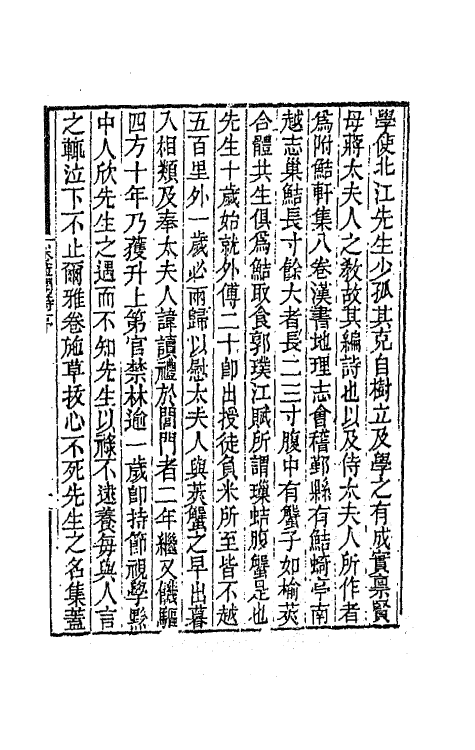 學使北江先生少孤其克自樹立及學之有成實稟賢
母蔣太夫人之教故其編詩也以及侍太夫人所作者
爲附鮚軒集八卷漢書地理志會稽鄞縣有鮚埼亭南
越志巢鮚長寸餘大者長二三寸腹中有蟹子如榆莢
合體共生俱爲鮚取食郭璞江賦所謂璅蛣腹蟹是也
先生十歲始就外傅二十卽出授徒負米所至皆不越
五百里外一歲必兩歸以慰太夫人與莢蟹之早出暮
入相類及奉太夫人諱讀禮於閭門者二年繼又饑驅
四方十年乃獲升上第官禁林逾一歲卽持節視學黔
中人欣先生之遇而不知先生以祿不逮養每與人言
之輒泣下不止爾雅卷施草拔心不死先生之名集蓋